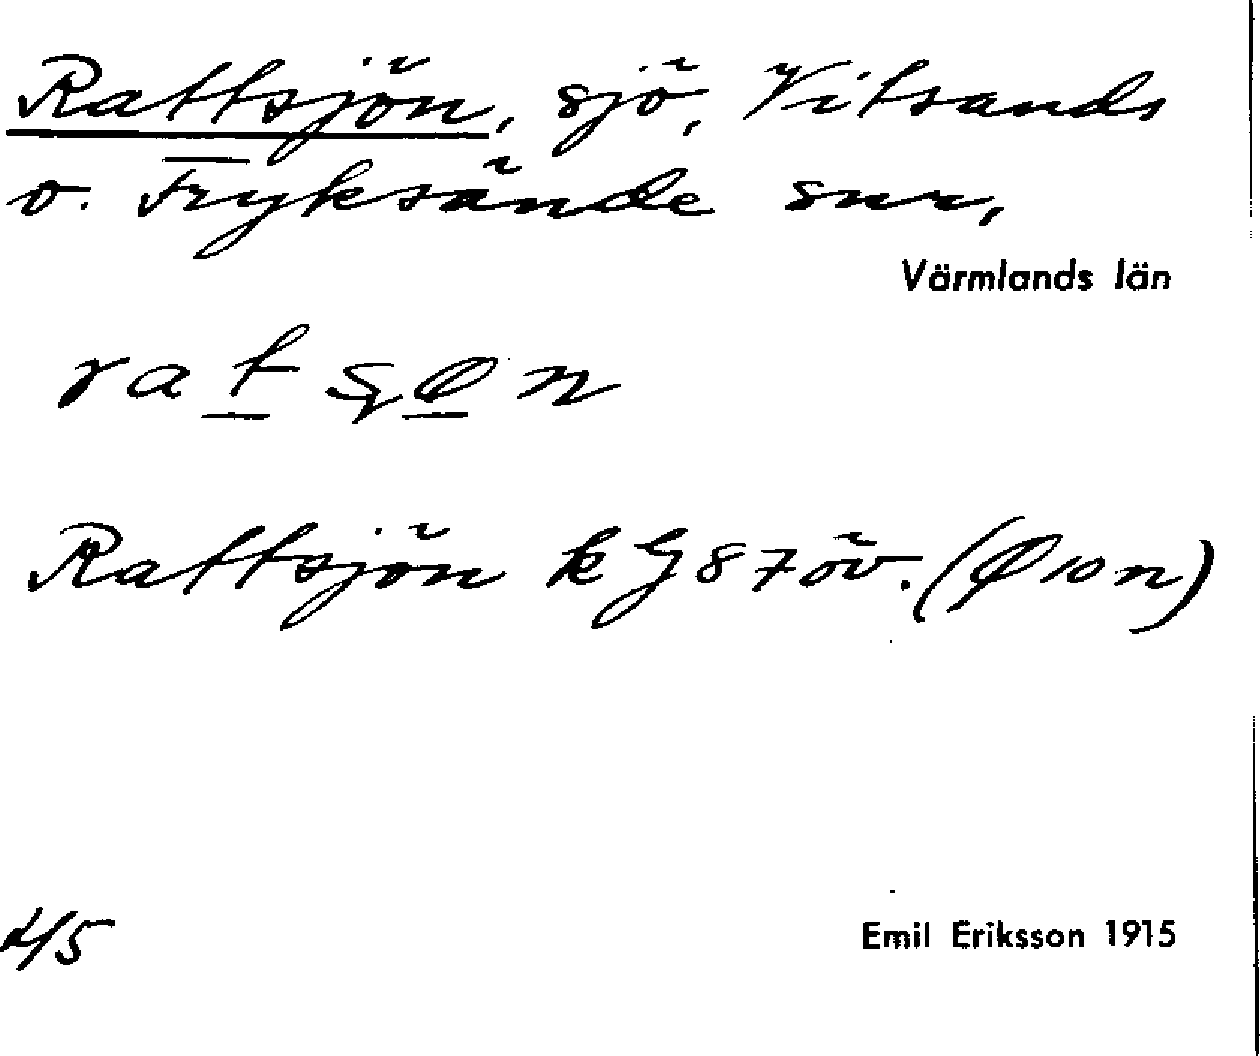 Rattsjön, sjö, Vitsands
o. Fryksände snr,
Värmlands län
ratʂøn
Rattsjön k G 87 öv. (Ø 10 n)
4/5
Emil Eriksson 1915